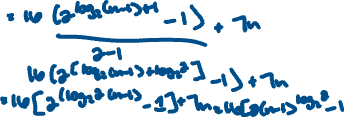 = 16 (2^{log_2(n-1)+1} - 1) / (2-1) + 7n
16(2^{[log_2(n-1)+log_2 2]} - 1) + 7n
= 16[2^{(log_2 2(n-1))} - 1] + 7n = 16[2(n-1)^{log_2 2} - 1